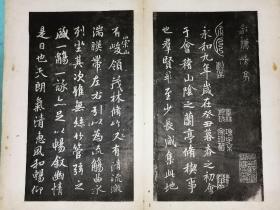 永和九年歲在癸丑暮春之初會
于會稽山陰之蘭亭脩禊事
也羣賢畢至少長咸集此地
崇山
有峻領茂林脩竹又有清流激
湍暎帶左右引以為流觴曲水
列坐其次雖無絲竹管弦之
盛一觴一詠亦足以暢敘幽情
是日也天朗氣清惠風和暢仰